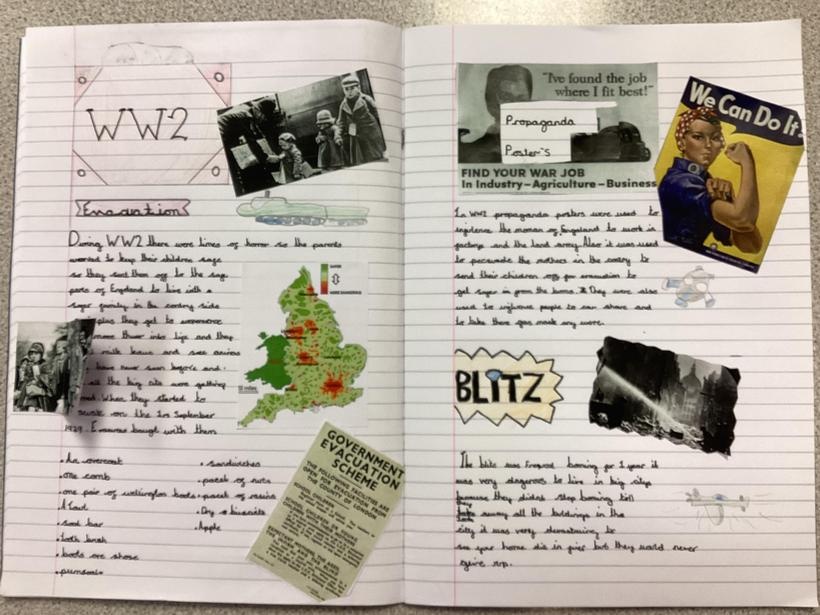 WW2
Evacuation
During WW2 there were times of horror so the parents
wanted to keep their children safe
so they sent them off to the safe
parts of England to live with a
safer family in the contry side
plus they get to experience
more thier into life and they
milk and see
have never seen before and
all the big citis were getting
When they started to
on the 1rs September
1939. bougt with them
.An overcoat
.one comb
.one pair of wellington boots
.
.soal bar
.tooth brush
.boots are shose
.pumsols
.sandwiches
.packet of nuts
.packet of raisins
.Dry biscuits
.Apple
SAFER
MORE DANGEROUS
GOVERNMENT
EVACUATION
SCHEME
THE FOLLOWING FACILITIES ARE
OPEN FOR EVACUATION FROM
THE COUNTY OF LONDON
SCHOOL CHILDREN
"I've found the job
where I fit best!"
Propaganda
Poster's
FIND YOUR WAR JOB
In Industry – Agriculture – Business
We Can Do It
In WW2 propaganda posters were used to
infulence the woman of England to work in
factorys and the land army. Also it was used
to persuade the mothers in the contry to
send their children off for evacuation to
get safer in from the bomb. They were also
used to infulence people to car share and
to take there gas mask any were.
BLITZ
The blitz was boming for 1 year it
was very dangeros to live in big citys
because they didnt stop boming till
they
away all the buildings in the
city it was very devastating to
see your home die in fier but they would never
give up.